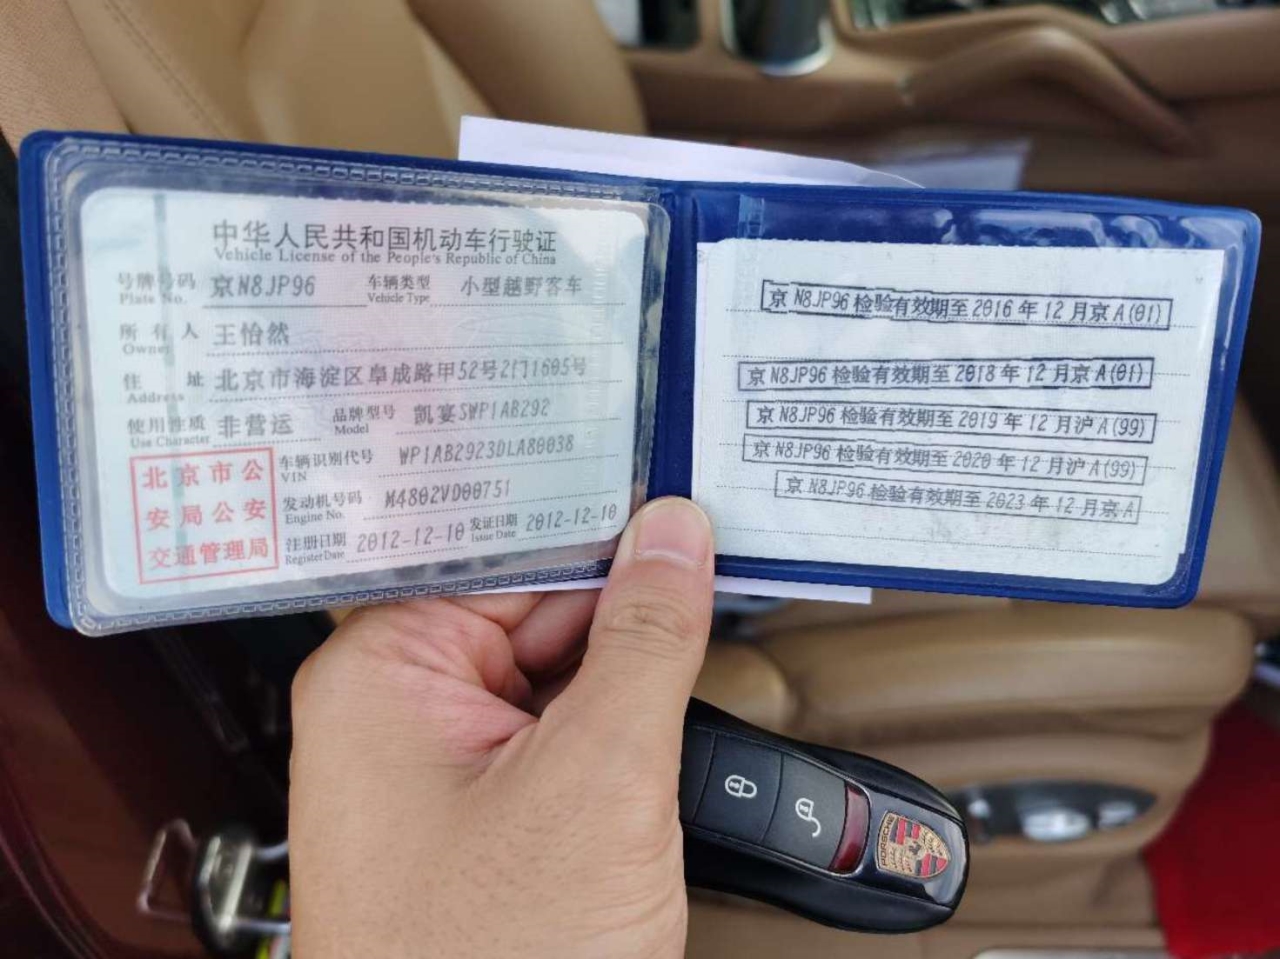 中华人民共和国机动车行驶证
Vehicle License of the People's Republic of China
号牌号码 京N8JP96 车辆类型 小型越野客车
Plate No. Vehicle Type
所有人 王怡然
Owner
住址 北京市海淀区阜成路甲52号2门1605号
Address
使用性质 非营运 品牌型号 凯宴SWP1AB292
Use Character Model
车辆识别代号 WP1AB2923DLA80038
VIN
发动机号码 M4802VD00751
Engine No.
注册日期 2012-12-10 发证日期 2012-12-10
Register Date Issue Date
北京市公
安局公安
交通管理局
京N8JP96检验有效期至2016年12月京A(01)
京N8JP96检验有效期至2018年12月京A(01)
京N8JP96检验有效期至2019年12月沪A(99)
京N8JP96检验有效期至2020年12月沪A(99)
京N8JP96检验有效期至2023年12月京A
PORSCHE